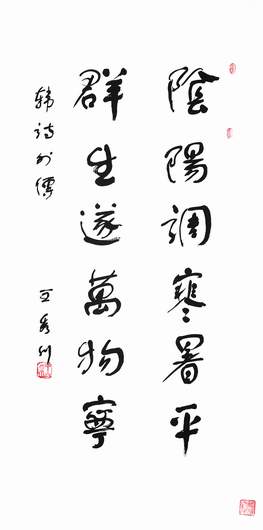 陰陽調寒暑平
群生遂萬物寧
韩诗外傳